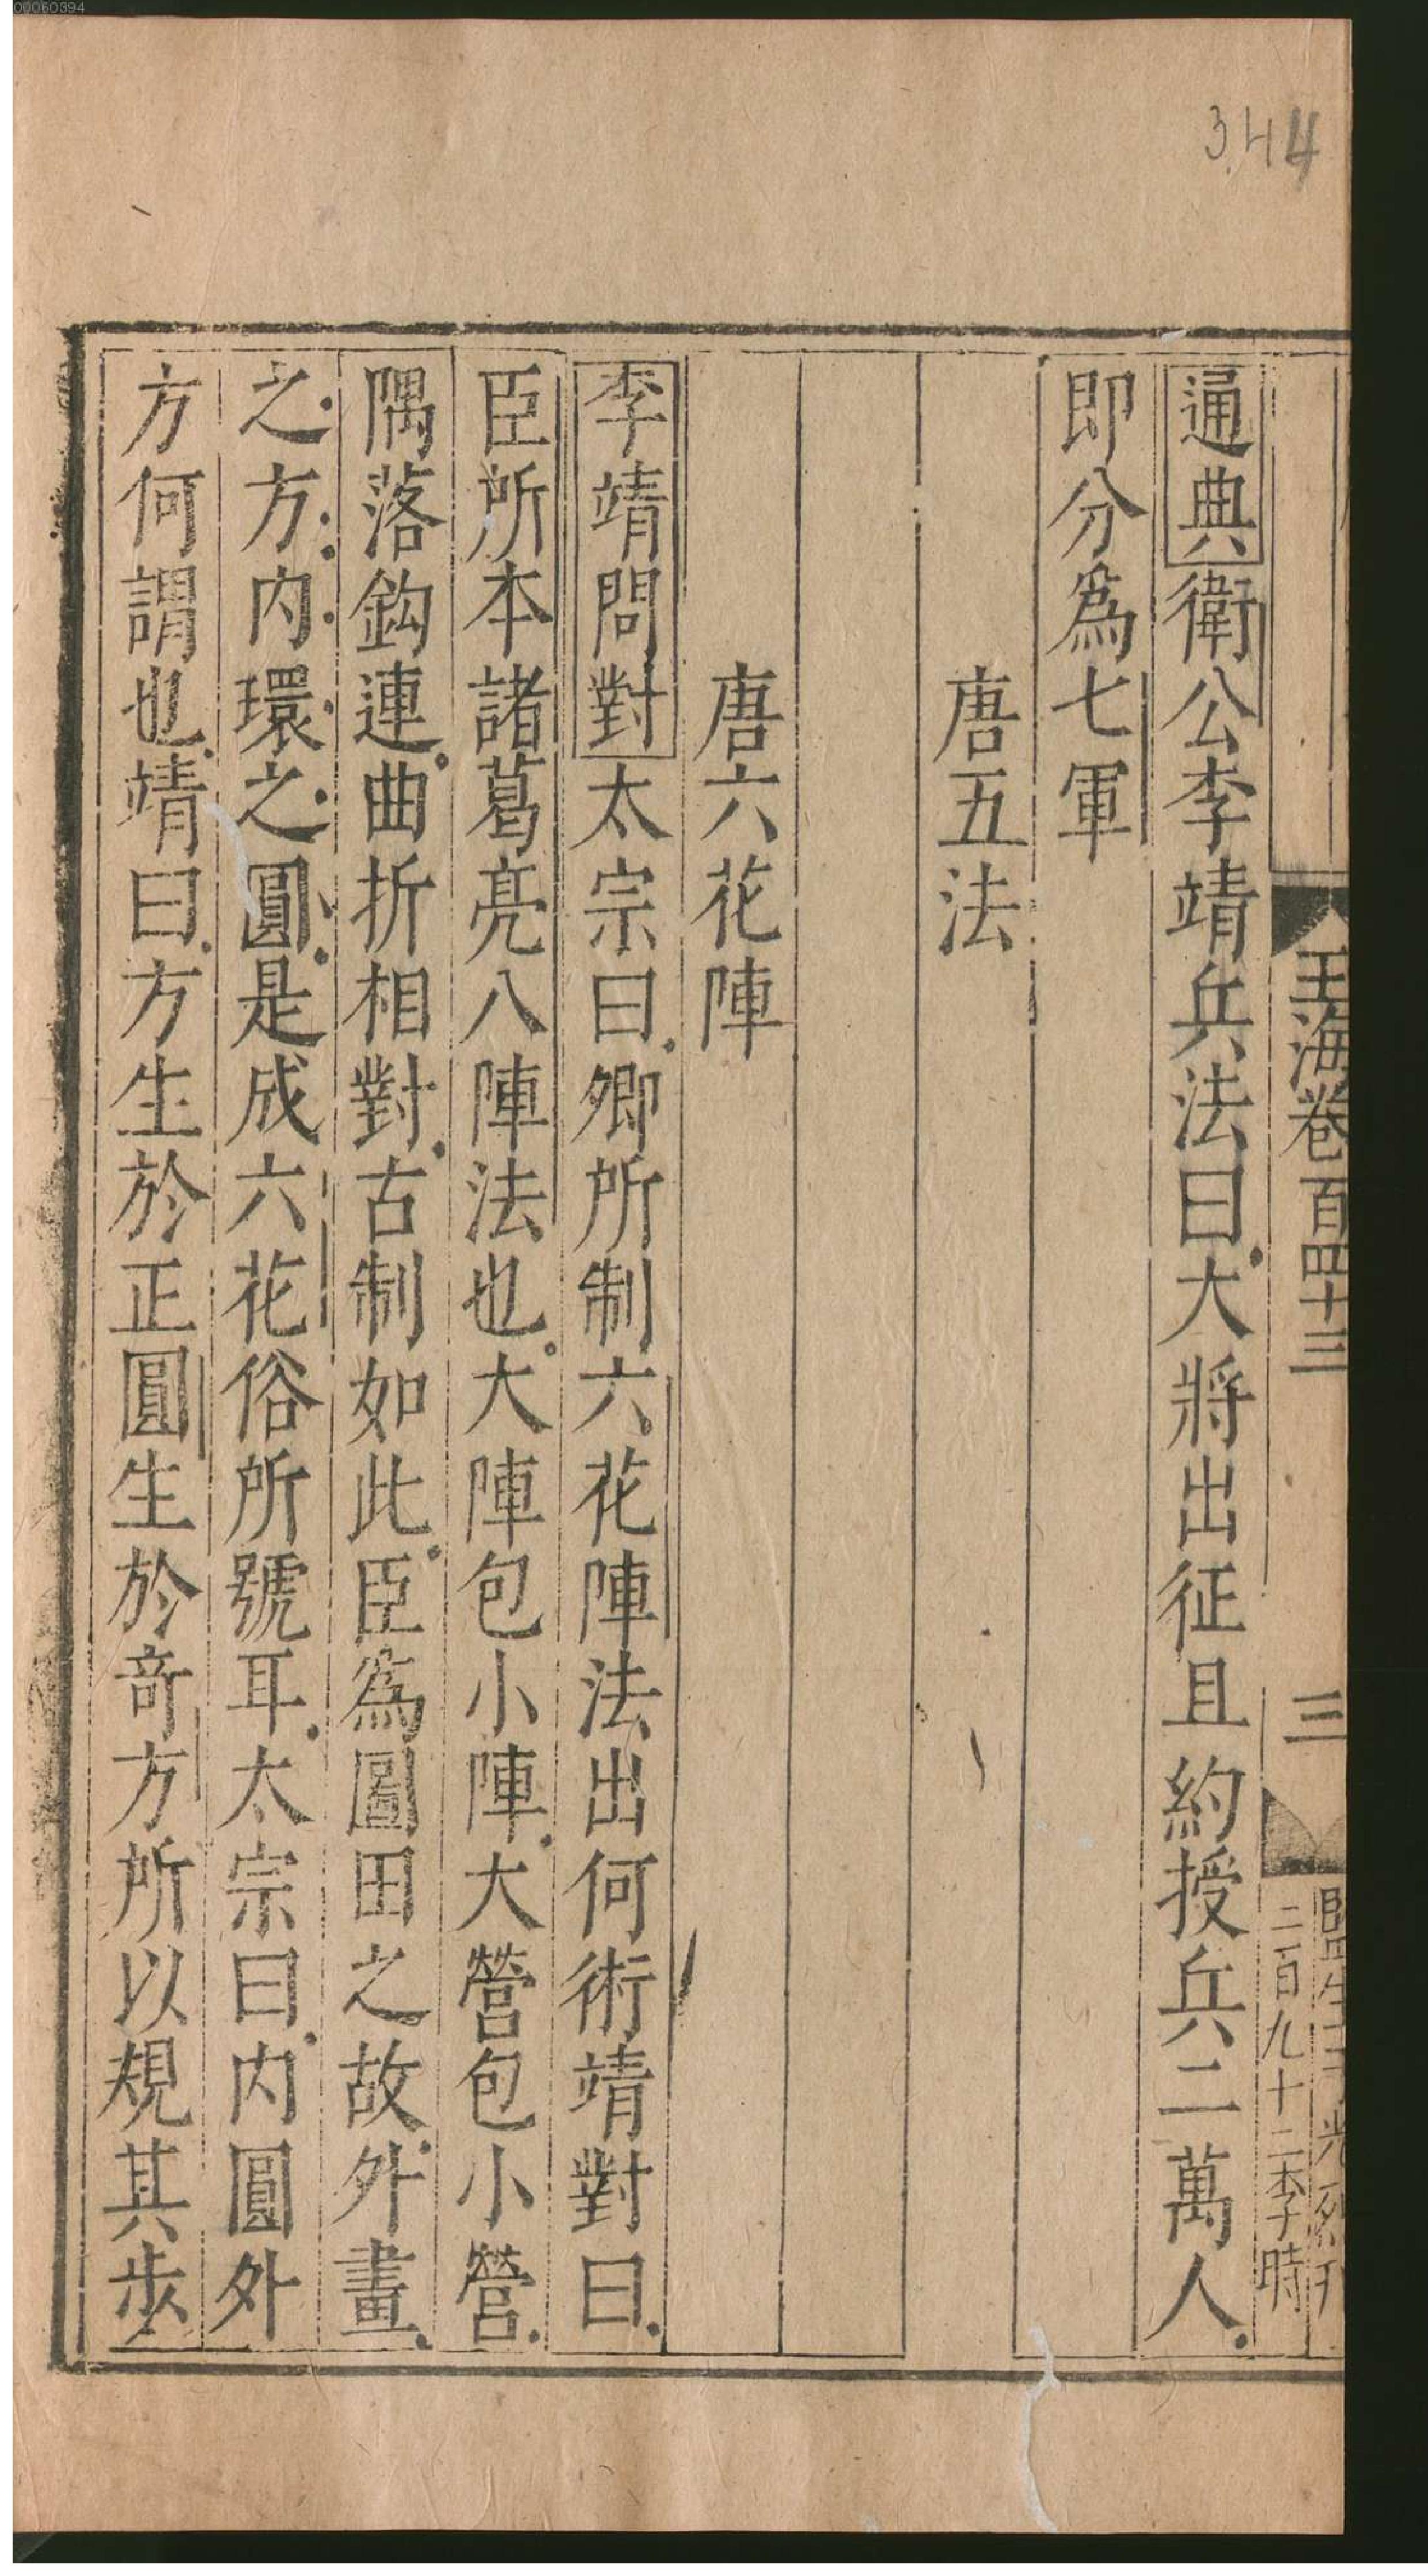 00060394
344
玉海卷百四十三
三
二百九十二李時
通典衛公李靖兵法曰大將出征且約授兵二萬人
即分爲七軍
唐五法
唐六花陣
李靖問對太宗曰卿所制六花陣法出何術靖對曰
臣所本諸葛亮八陣法也大陣包小陣大營包小營
隅落鈎連曲折相對古制如此臣爲圖田之故外畫
之方内環之圓是成六花俗所號耳太宗曰内圓外
方何謂也靖曰方生於正圓生於竒方所以規其步